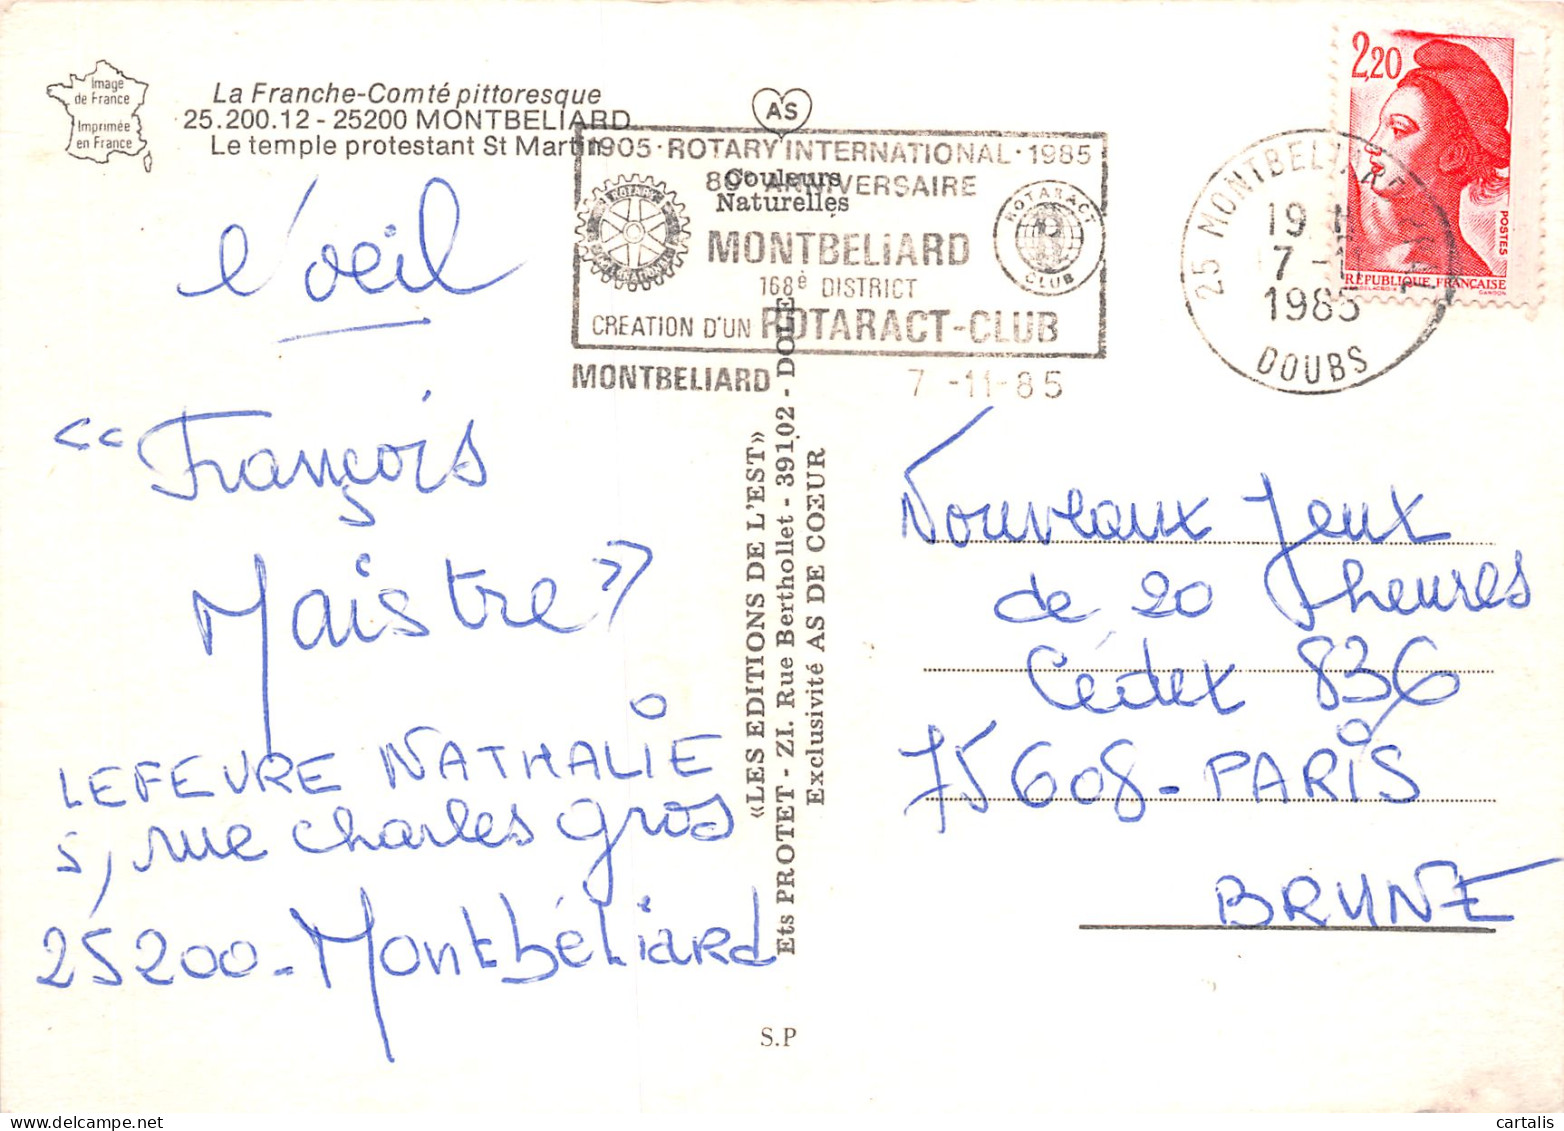 Image
de France
Imprimée
en France
La Franche-Comté pittoresque
25.200.12 - 25200 MONTBELIARD
Le temple protestant St Martin
AS
Couleurs
Naturelles
1905 · ROTARY INTERNATIONAL · 1985
80e ANNIVERSAIRE
ROTARY
MONTBELiARD
168è DISTRICT
CREATION D'UN ROTARACT-CLUB
ROTARACT
CLUB
MONTBELIARD
7 -11-85
25 MONTBELIARD
19 H
7 -11
1985
DOUBS
2,20
POSTES
RÉPUBLIQUE FRANÇAISE
DELACROIX
GANDON
l'oeil
<< François
Maistre >>
LEFEVRE NATHALIE
5, rue Charles Gros
25200 - Montbéliard
«LES EDITIONS DE L'EST»
Ets PROTET - ZI. Rue Berthollet - 39102 - DOLE
Exclusivité AS DE CŒUR
S.P
Nouveaux Jeux
de 20 heures
Cédex 836
75608 - PARIS
BRUNE
cartalis